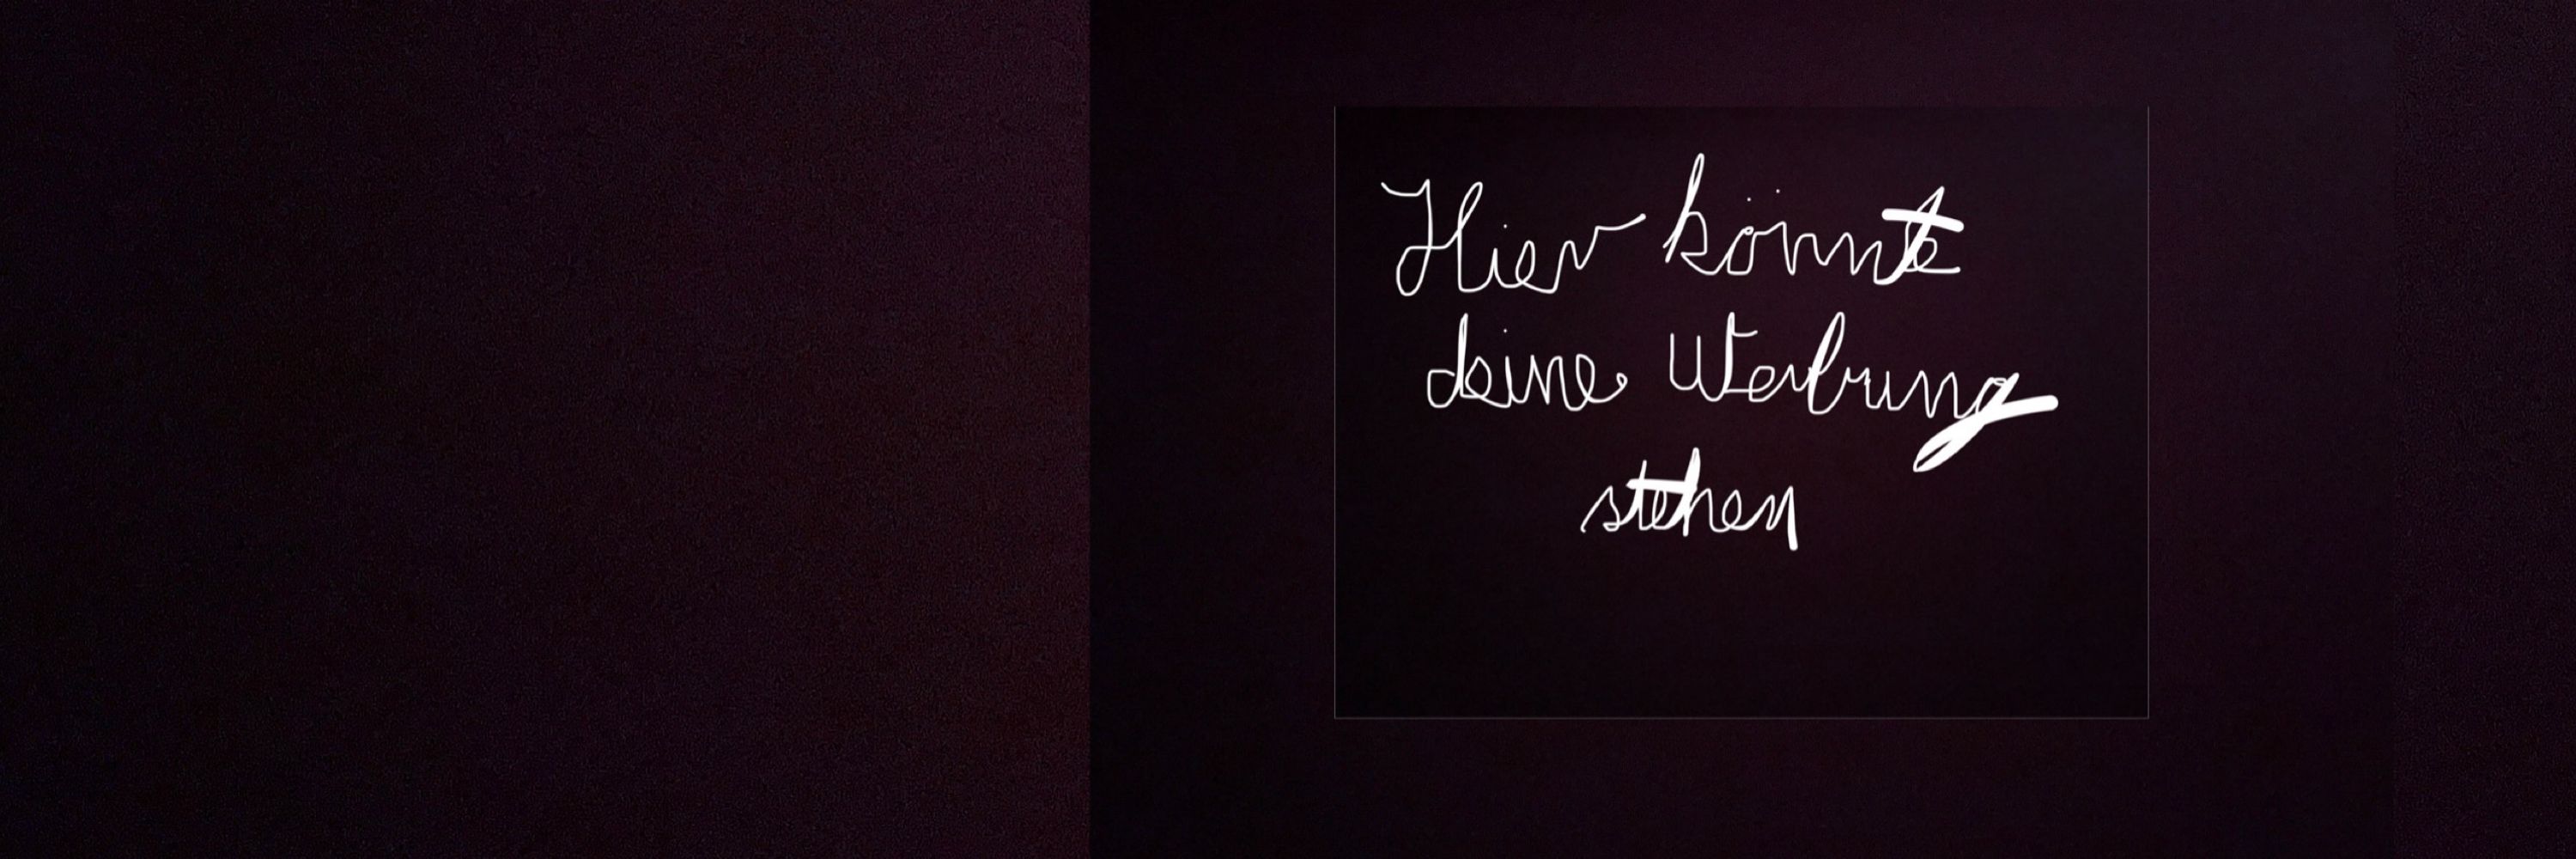 Hier könnte
deine Werbung
stehen